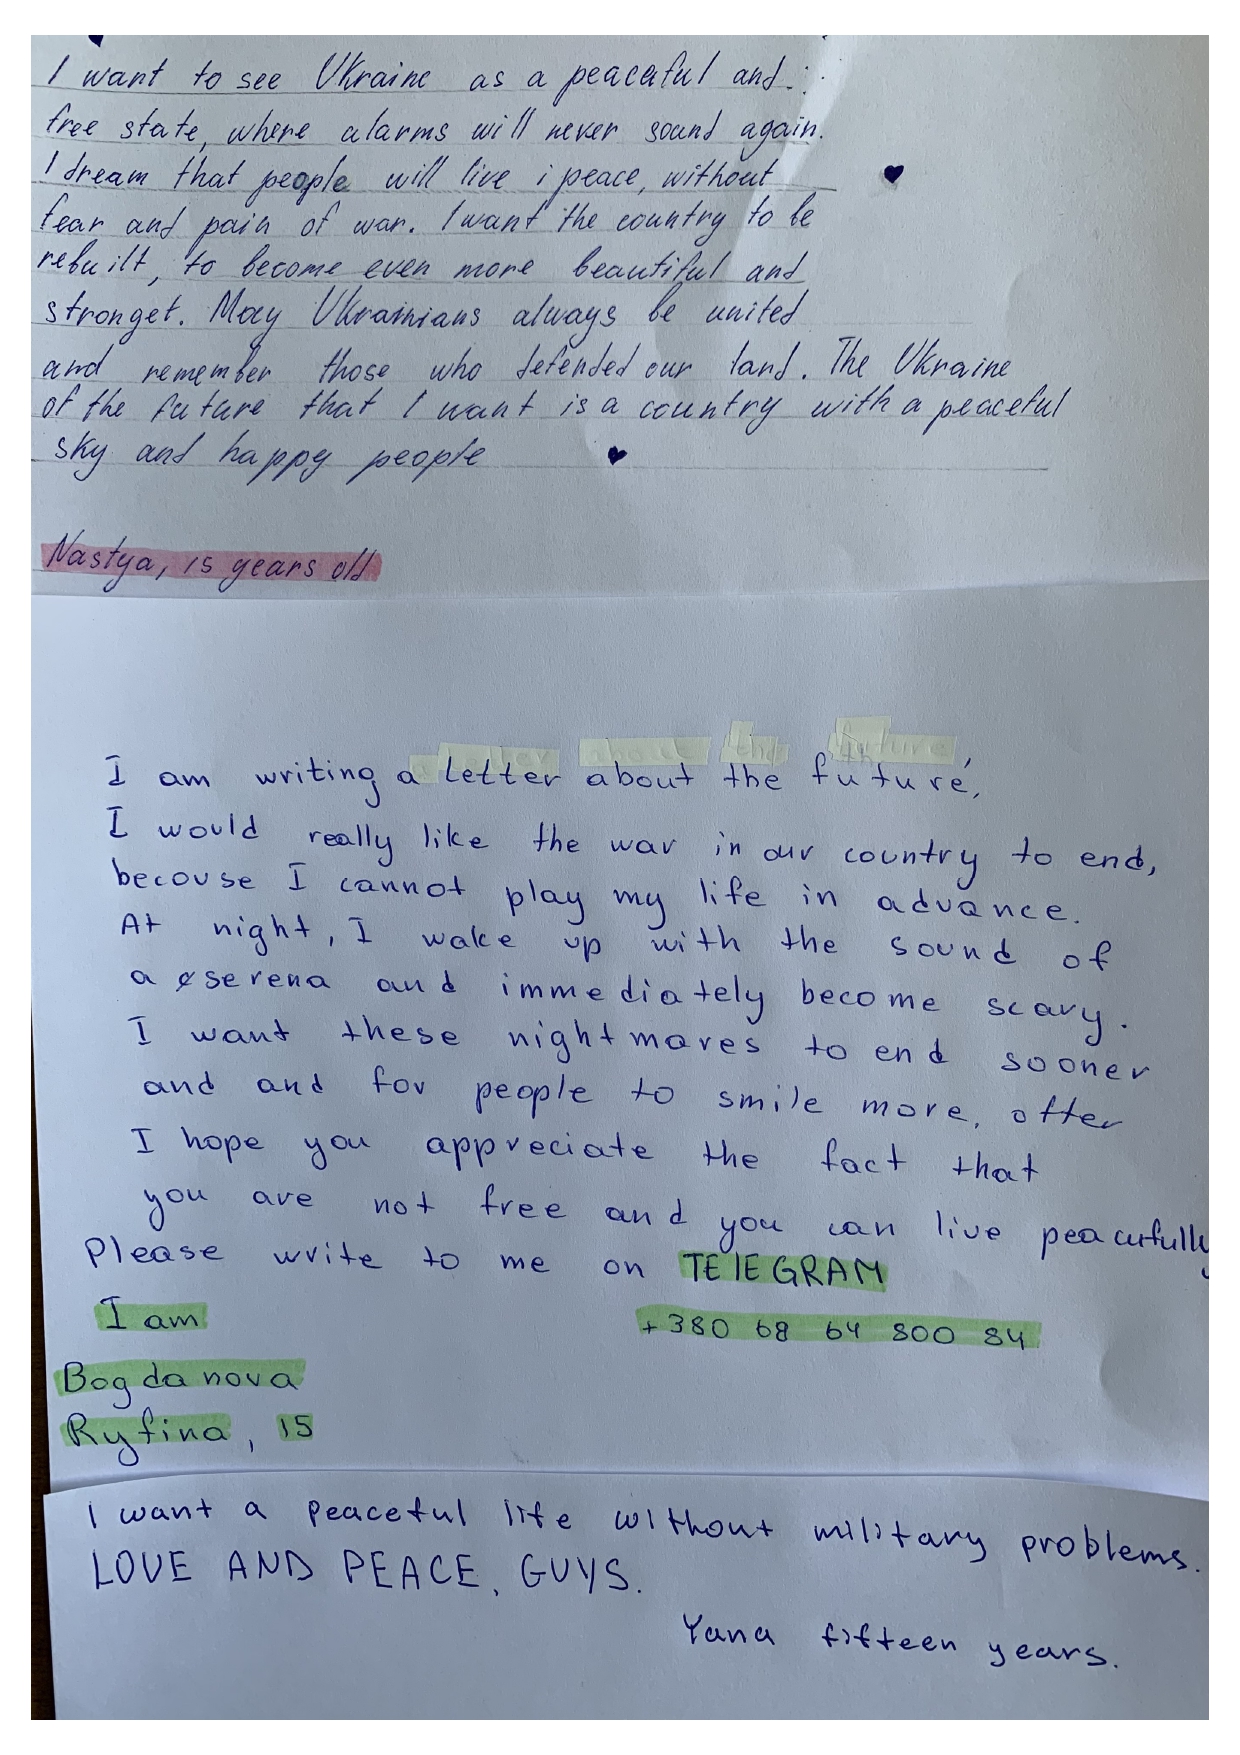 I want to see Ukraine as a peaceful and
free state, where alarms will never sound again.
I dream that people will live i peace, without
fear and pain of war. I want the country to be
rebuilt, to become even more beautiful and
stronget. May Ukrainians always be united
and remember those who defended our land. The Ukraine
of the future that I want is a country with a peaceful
sky and happy people
Nastya, 15 years old
I am writing a letter about the future,
I would really like the war in our country to end,
becouse I cannot play my life in advance.
At night, I wake up with the sound of
a serena and immediately become scavy.
I want these nightmares to end sooner
and and for people to smile more, ofter
I hope you appreciate the fact that
you are not free and you can live peacufully
Please write to me on TELEGRAM
I am
+380 68 64 800 84
Bogdanova
Ryfina, 15
I want a peaceful life without military problems.
LOVE AND PEACE, GUYS.
Yana fifteen years.